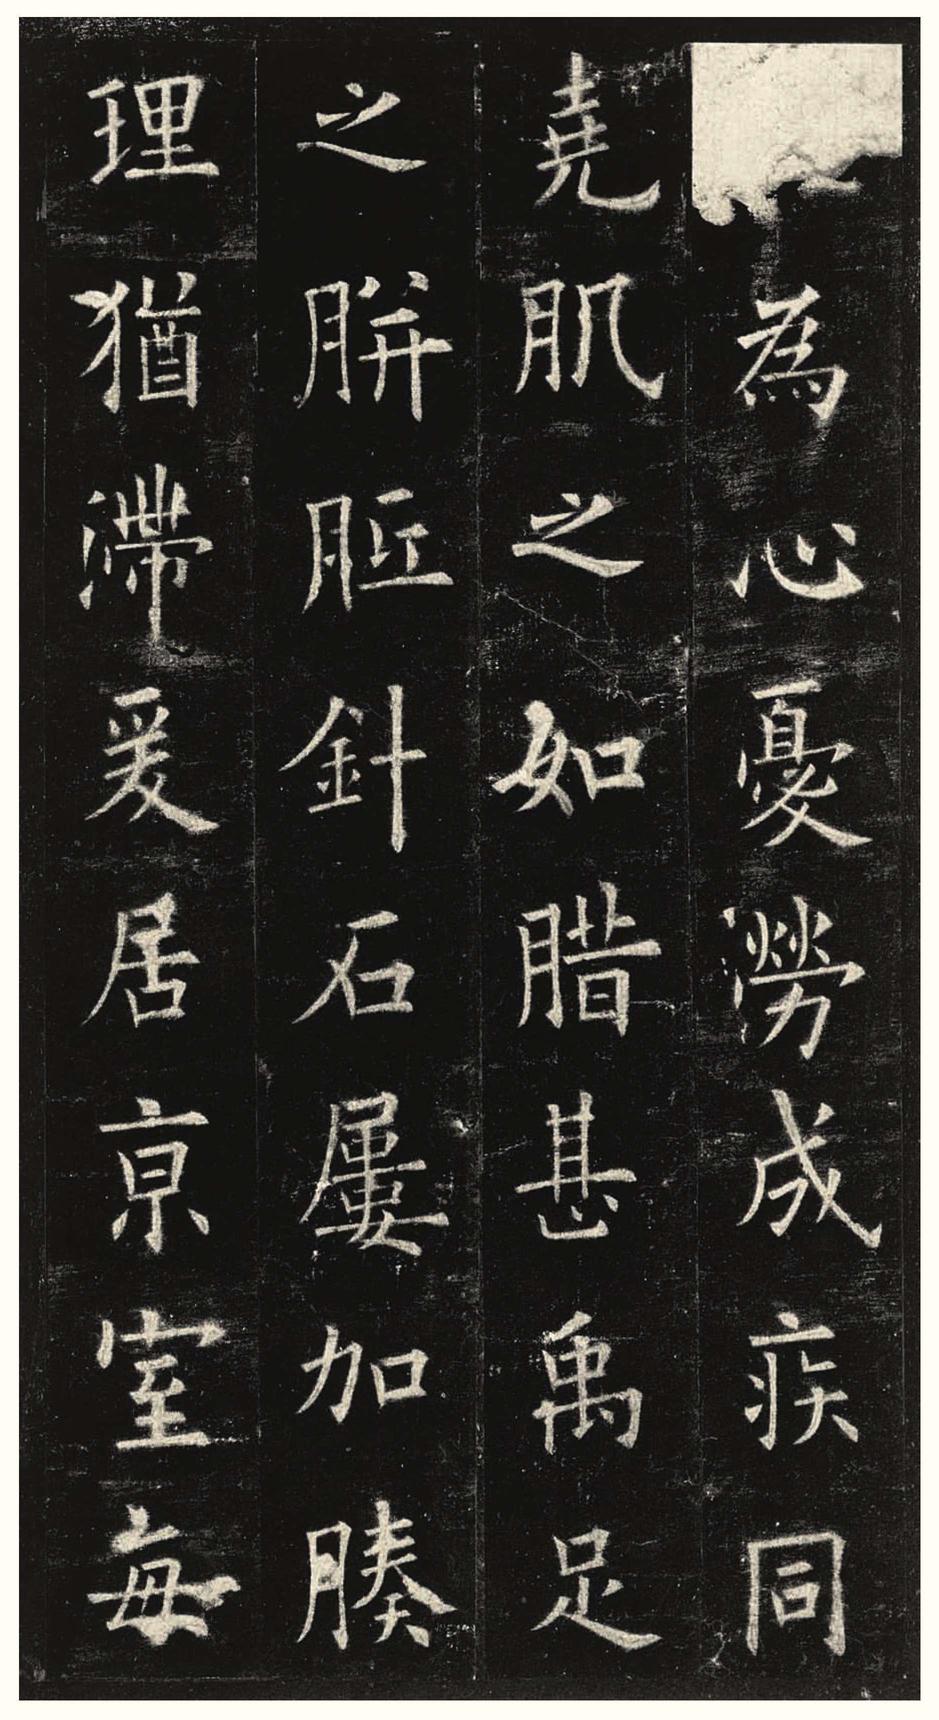 為心憂勞成疾同
堯肌之如腊甚禹足
之胼胝針石屢加腠
理猶滯爰居京室每